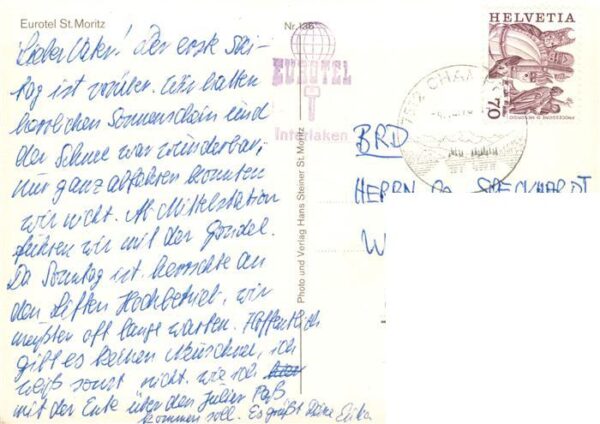 Eurotel St. Moritz
Nr. 136
Lieber Vater! Der erste Ski-
tag ist vorüber. Wir hatten
herrlichen Sonnenschein und
der Schnee war wunderbar,
nur ganz abfahren konnten
wir nicht. Ab Mittelstation
fuhren wir mit der Gondel.
Da Sonntag ist, herrschte an
den Liften Hochbetrieb, wir
mußten oft lange warten. Hoffentlich
gibt es keinen Neuschnee, ich
weiß sonst nicht, wie ich
mit der Ente über den Julier Paß
kommen soll. Es grüßt Deine Erika
Photo und Verlag Hans Steiner St. Moritz
EUROTEL
Interlaken
HELVETIA
70
BRD
HERRN
SPECKHARDT
W